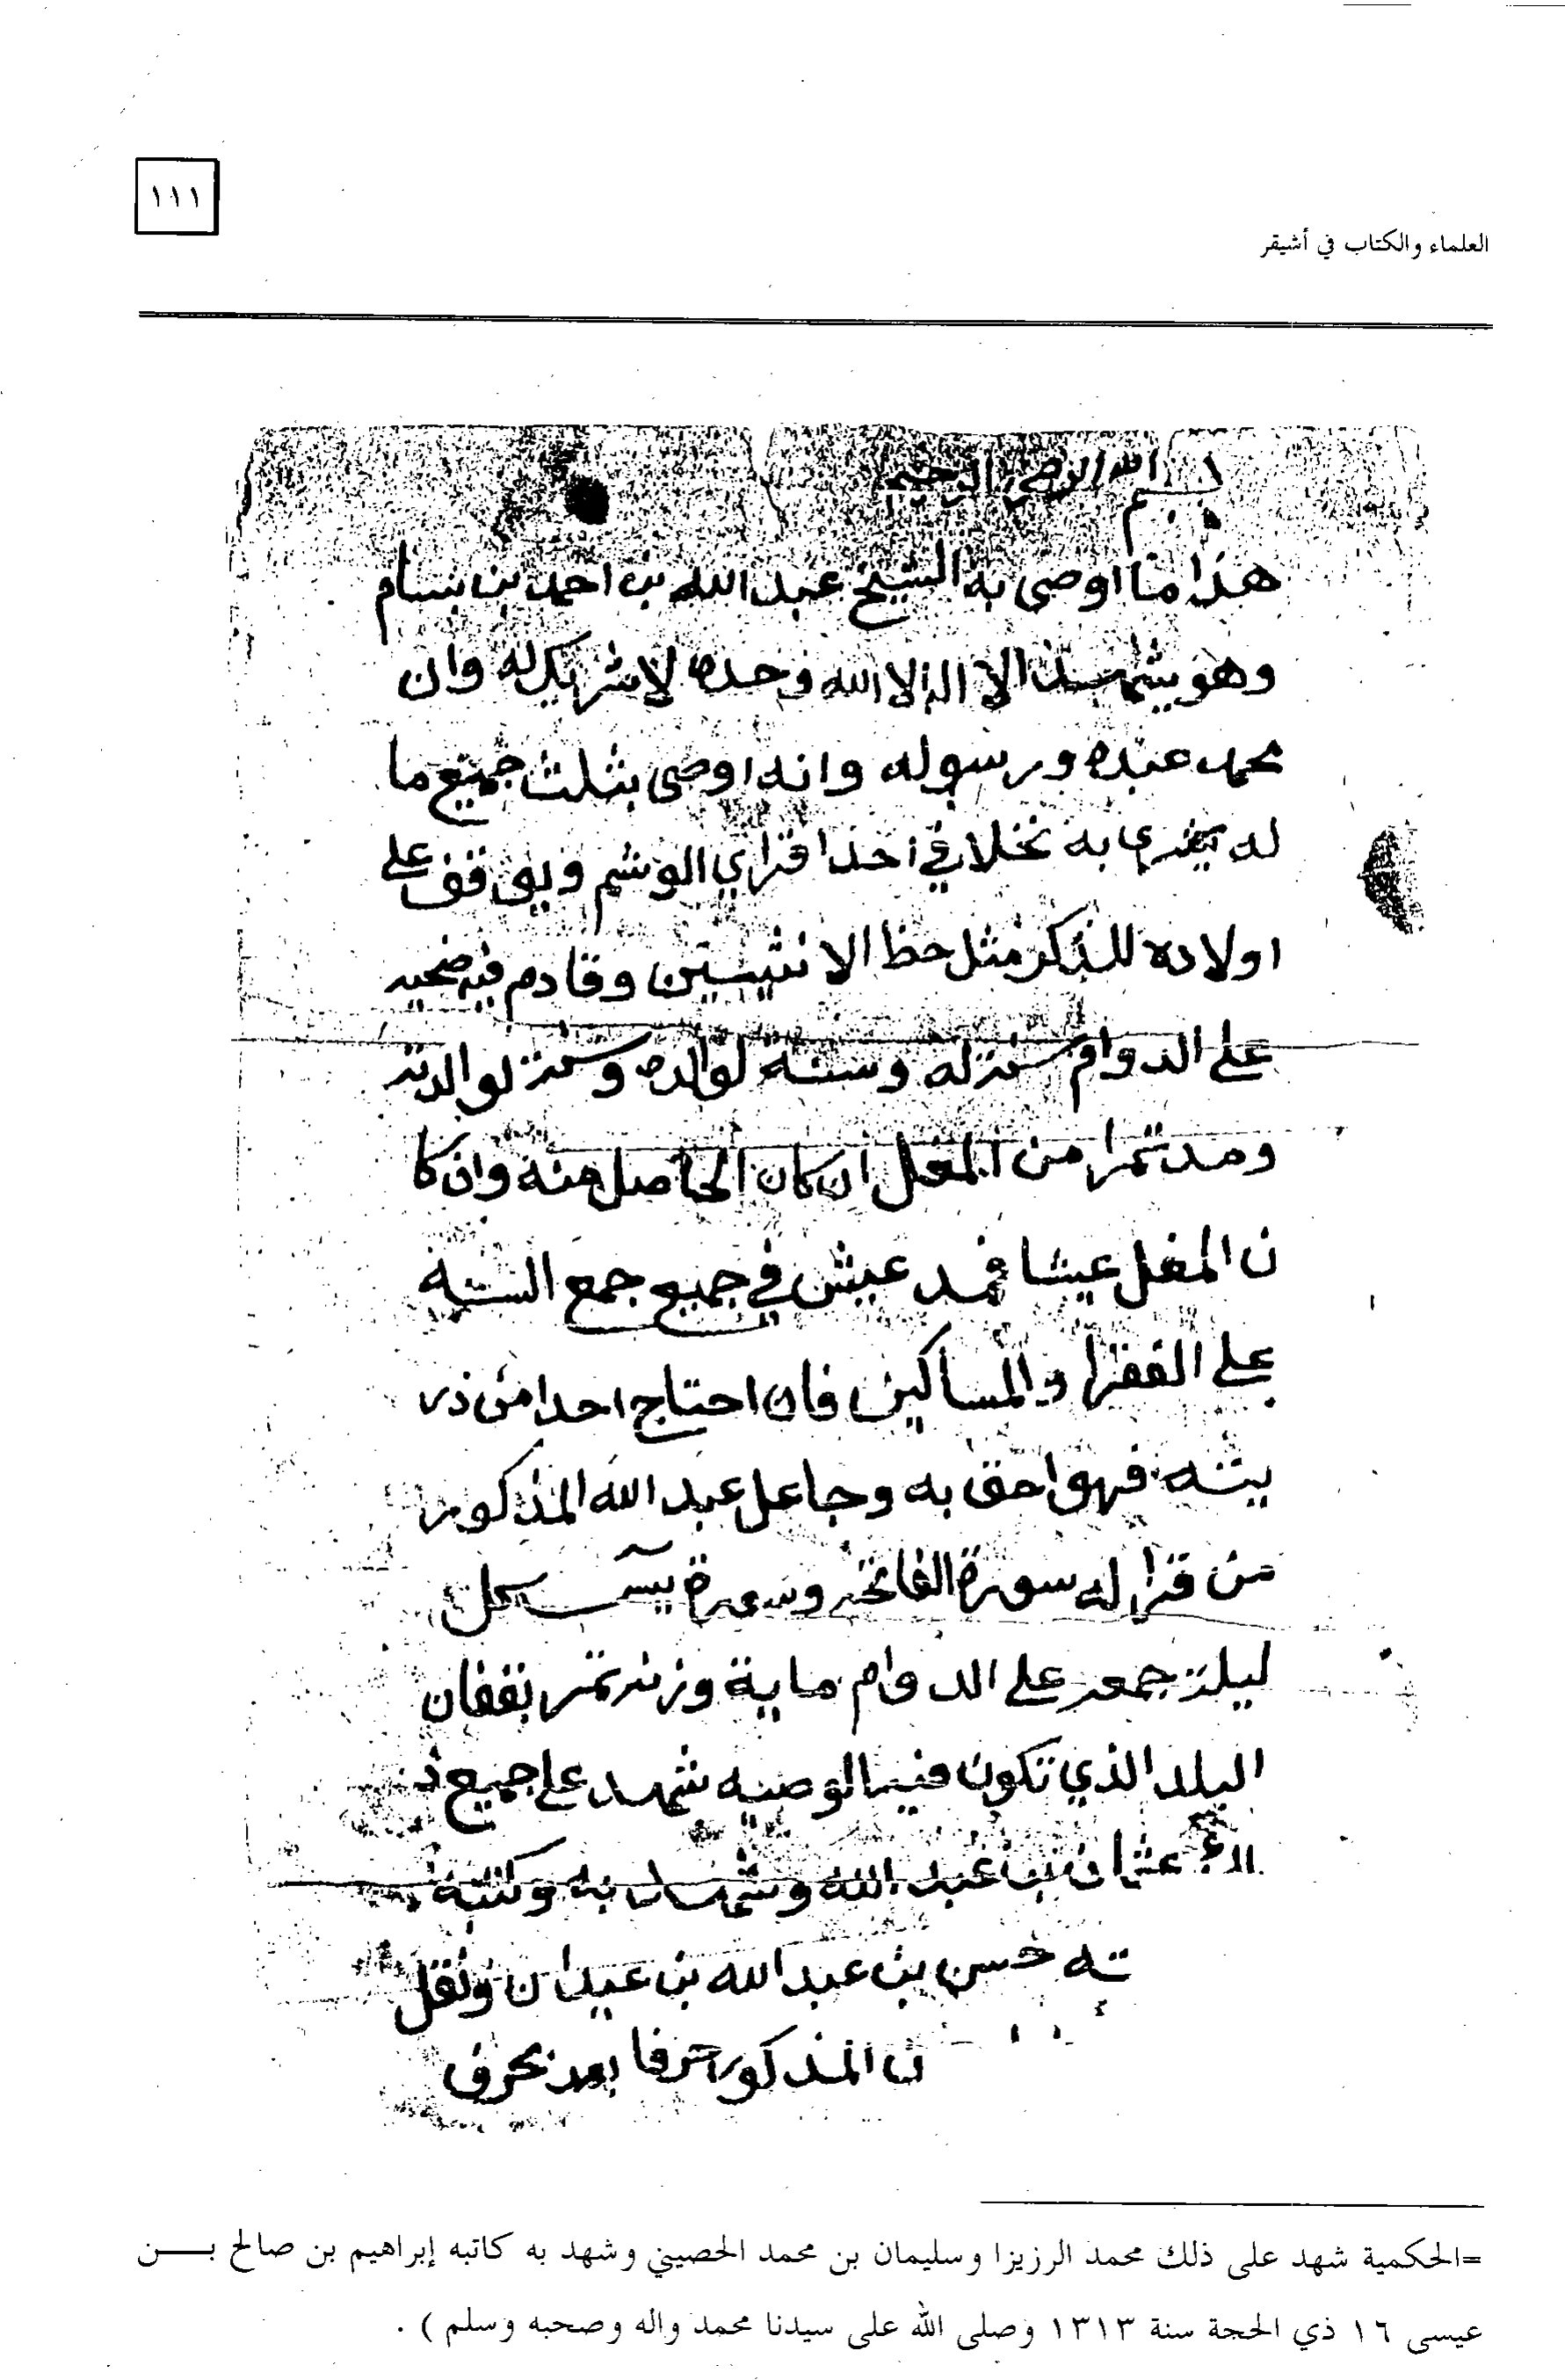 ١١١
العلماء والكتاب في أشيقر
بسم الله الرحمن الرحيم
هذا ما اوصى به الشيخ عبد الله بن احمد بن بسام
وهو يشهد ان لا اله الا الله وحده لا شريك له وان
محمد عبده ورسوله وانه اوصى بثلث جميع ما
له يشرى به نخلا في احدا قراي الوشم ويوقف على
اولاده للذكر مثل حظ الانثيين وقادم فيه ضحيه
على الدوام سنة له وسنة لوالده وسنة لوالدته
ومد تمرا من المغل ان كان الحاصل منه وان كا
ن المغل عيشا فمد عيش في جميع جمع السنه
على الفقرا والمساكين فان احتاج احدا من ذر
يته فهو احق به وجاعل عبد الله المذكور
من قرا له سورة الفاتحه وسورة يس كل
ليلة جمعه على الدوام ماية وزنه تمر بقفان
البلد الذي تكون فيها الوصيه شهد على جميع ذ
الك عثمان بن عبد الله وشهد به وكتبه
حسن بن عبد الله بن عيدان ونقل
ن المذكور حرفا بعد حرف
=الحكمية شهد على ذلك محمد الرزيزا وسليمان بن محمد الحصيني وشهد به كاتبه إبراهيم بن صالح بـــن
عيسى ١٦ ذي الحجة سنة ١٣١٣ وصلى الله على سيدنا محمد واله وصحبه وسلم ) .